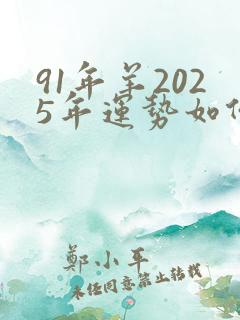 91年羊202
5年運勢如
鄭小平
未経同意禁止转载